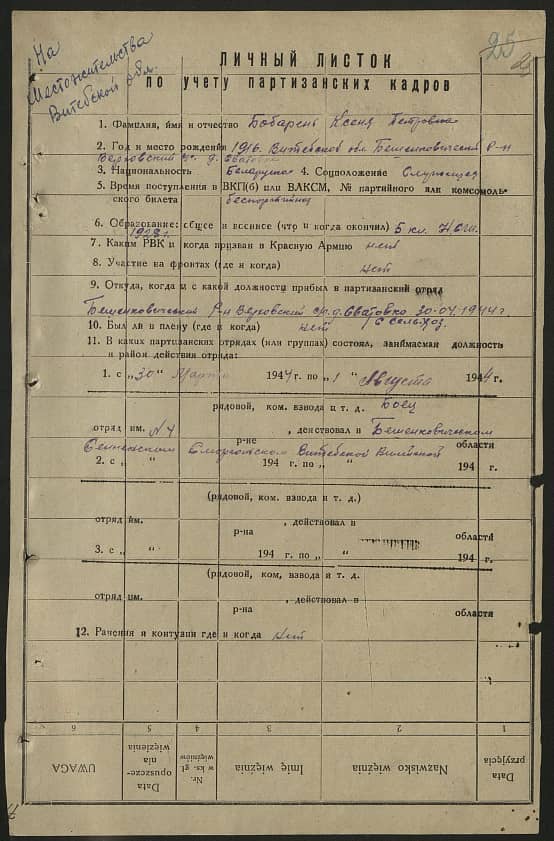 На
Местожительства
Витебской обл.
25
ЛИЧНЫЙ ЛИСТОК
по учету партизанских кадров
1. Фамилия, имя и отчество Бобарень Ксеня Петровна
2. Год и место рождения 1916. Витебской обл. Бешенковический р-н
Верховский с/с. д. Сватовка
3. Национальность Беларуска 4. Соцположение Служащая
5. Время поступления в ВКП(б) или ВЛКСМ, № партийного или комсомоль-
ского билета беспартийная
6. Образование: общее и военное (что и когда окончил) 5 кл. НСШ.
1928г.
7. Каким РВК и когда призван в Красную Армию нет
8. Участие на фронтах (где и когда) нет
9. Откуда, когда и с какой должности прибыл в партизанский отряд
Бешенковический р-н Верховский с/с. д. Сватовка 30.04.1944 г.
10. Был ли в плену (где и когда) нет / с сельхоз.
11. В каких партизанских отрядах (или группах) состоял, занимаемая должность
и район действия отряда:
1. с „30" Марта 1944 г. по „1" Августа 1944 г.
рядовой, ком. взвода и т. д. Боец
отряд им. №4, действовал в Бешенковическом
Сенненском Сморгонском р-не Витебской Вилейской области
2. с „ " 194 г. по „ " 194 г.
(рядовой, ком. взвода и т. д.)
отряд им. , действовал в
р-на области
3. с „ " 194 г. по „ " 194 г.
(рядовой, ком, взвода и т. д.
отряд им. , действовал в
р-на области
12. Ранения и контузии где и когда нет
6 5 4 3 2 1
UWAGA
Data opuszcze-
nia
więzienia
Nr.
w ks. gł.
więźniów
Imię więźnia
Nazwisko więźnia
Data
przyjęcia